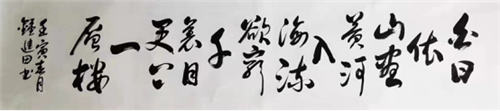 白日
依
山盡
黄河
入
海流
欲窮
千
里目
更上
一
層樓
壬寅春月
鍾進田书